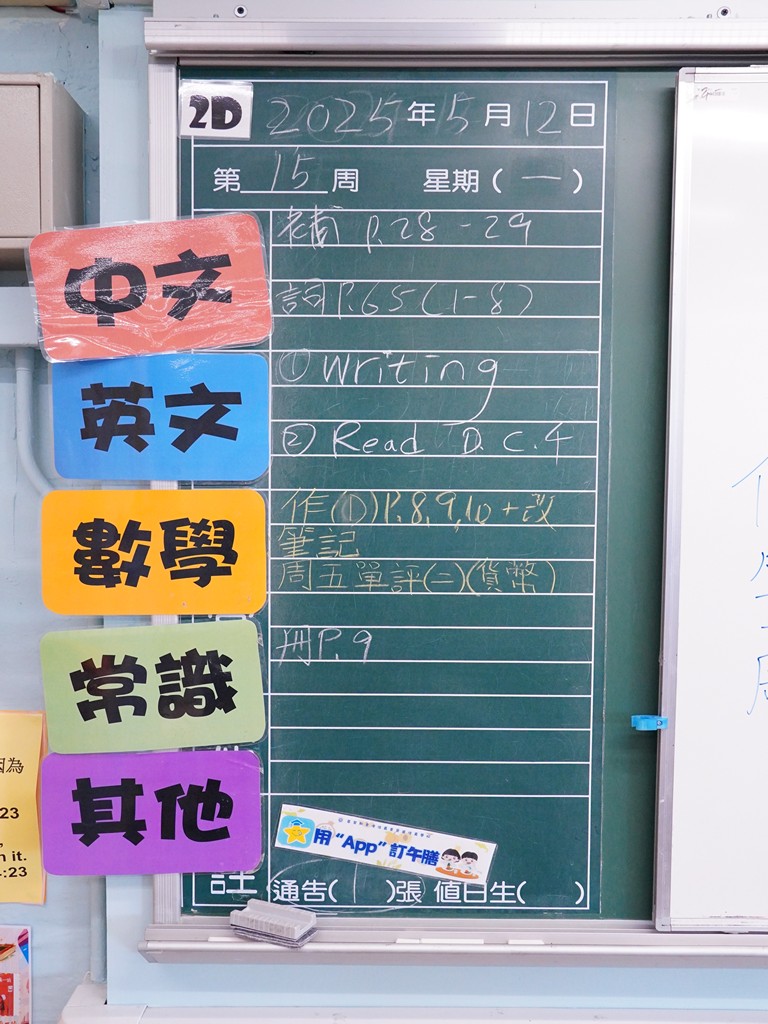 2D 2025年5月12日
第 15 周 星期(一)
中文
P.28-29
詞P.65(1-8)
英文
① Writing
② Read D.C.4
數學
作(D)P.8,9,10+改
筆記
周五單評(二)(貨幣)
常識
冊P.9
其他
用“App”訂午膳
註 通告(1)張 值日生( )
因為
23
n it.
:23